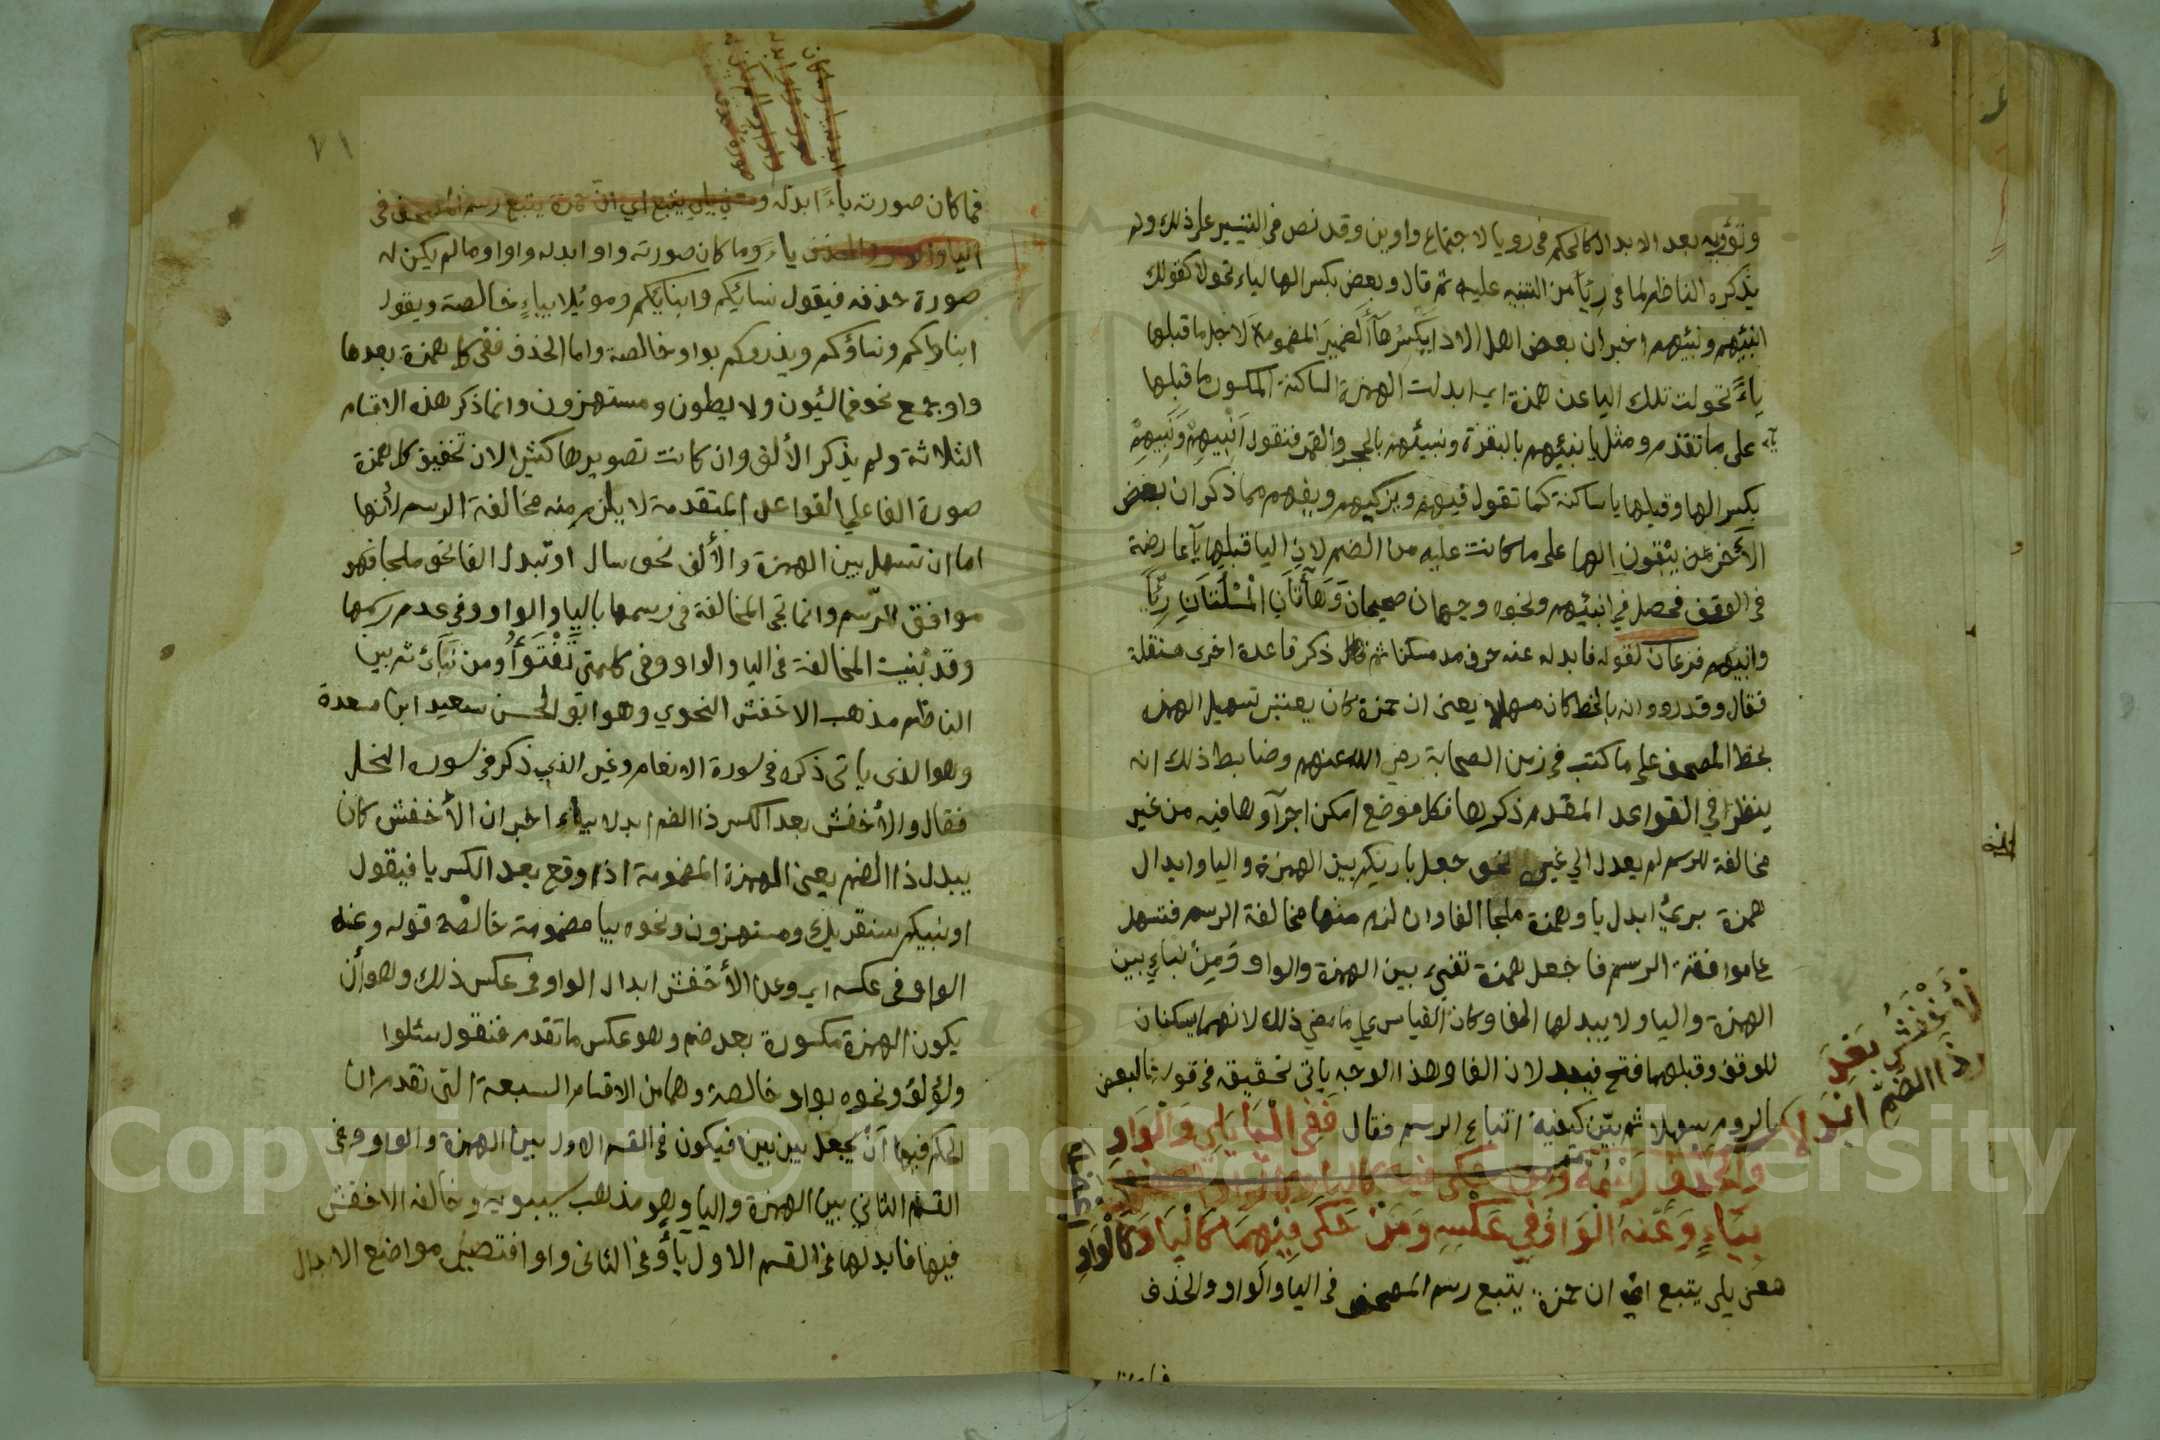 وتؤويه بعد الابدال كالحكم في رويا لاجتماع واوين وقد نص في التيسير على ذلك ولم
يذكره الناظم لما في رِيًا من التنبيه عليه ثم قال وبعض بكسر الها لياء تحولا كقولك
انبيهم ونبيهم اخبر ان بعض اهل الادا يكسر هآأ لضمير المضمومة لاجل ما قبلها
ياءً تحولت تلك اليا عن همزة اي ابدلت الهمزة الساكنة المكسور ما قبلها
ياء على ما تقدم ومثل يا نبئهم بالبقرة ونبيئهم بالحجر والقمر فتقول اَنْبِيهِمْ ونَبِيهِمْ
بكسر الها وقبلها يا ساكنة كما تقول فيهم ويزكيهم ويفهم مما ذكر ان بعض
الآخر من يبقون الها على ما كانت عليه من الضم لان اليا قبلها يآ عارضة
في الوقف فحصل في انبئهم ونحوه وجهان صحيحان وَهَاتَانِ الْمَسْئَلَتَانِ رِيًّا
وانبيهم فرعان لقوله فابدله عنه حرف مد مسكنا ثم ذكر قاعدة اخرى مستقلة
فقال وقد رووا انه بالخط كان مسهلا يعني ان حمزة كان يعتبر تسهيل الهمز
بخط المصحف على ما كتب في زمن الصحابة رضي الله عنهم وضابط ذلك انه
ينظر في القواعد المقدم ذكرها فكل موضع امكن اجرآوها فيه من غير
مخالفة للرسم لم يعدل الي غيره نحو جعل باريكم بين الهمزة واليا وابدال
همزة بريءُ ابدل يا وهمزة ملجا الفا وان لزم منها مخالفة الرسم فتسهل
على موافقة الرسم فاجعل همزة تفتؤ بين الهمزة والواو وَمِنْ نَباءِ بين
الهمزة واليا ولا يبدلها الفا وكان القياس علي ما مضي ذلك لانهما يسكنان
للوقف وقبلهما فتح فيبدلان الفا وهذا الوجه ياتى تحقيقه في قوله فالبعض
بالروم سهلا ثم بيّن كيفية اتباع الرسم فقال فَفِي الْيَا يَلِي وَالْوَاوِ
وَالْحَذْفِ رَسْمَهُ
وَالأَخْفَشُ بَعْدَ
ذَا الضَّمِّ ابْدَلا
بِيَاءٍ وَعَنْهُ الْوَاوُ فِي عَكْسِهِ وَمَنْ حَكَى فِيْهِمَا كَالْيَا وَكَالْوَاوِ
معنى يلى يتبع اي ان حمزة يتبع رسم المصحف في اليا والواو والحذف
٧١
فما كان صورته ياءً ابدله
ياءً وما كان صورته واو ابدله واوا وما لم يكن له
صورة حذفه فيقول نسائيكم وابنايكم وموئلا بياءٍ خالصة ويقول
ابناوكم ونساؤكم ويذروكم بواو خالصة واما الحذف ففي كل همزة بعدها
واو جمع نحو فمالئون ولا يطون ومستهزون وانما ذكر هذه الاقسام
الثلاثة ولم يذكر الألف وان كانت تصويرها كثير الان تخفيف كل همزة
صورة الفا علي القواعد المتقدمة لا يلزم منه مخالفة الرسم لأنها
اما ان تسهل بين الهمزة والألف نحو سال او تبدل الفا نحو ملجا فهو
موافق للرّسم وانما تجي المخالفة في رسمها باليا والواو وفي عدم رسمها
وقد بنيت المخالفة في اليا والواو وفي كلمتى تَفْتَؤُا ومن نَبَاءِ ثم بين
الناظم مذهب الاخفش النحوي وهو ابو الحسن سعيد ابن مسعدة
وهو الذى ياتى ذكره في سورة الانعام وغير الذي ذكر في سورة النحل
فقال والأخفش بعد الكسر ذا الضم ابدلا بياء اخبر ان الأخفش كان
يبدل ذا الضم يعني الهمزة المضمومة اذا وقع بعد الكسر يا فيقول
اونبيكم سنقريك ومستهزون ونحوه بيا مضمومة خالصة قوله وعنه
الواو في عكسه اي وعن الأخفش ابدال الواو في عكس ذلك وهو أن
يكون الهمزة مكسورة بعد ضم وهو عكس ما تقدم فتقول سئلوا
ولؤلؤ ونحوه بواو خالصة وهما من الاقسام السبعة التى تقدم ان
الحكم فيها أنْ يجعل بين بين فيكون في القسم الاول بين الهمزة والواو وفي
القسم الثاني بين الهمزة واليا وهو مذهب سيبويه وخالفه الاخفش
فيها فابدلها في القسم الاول يآ وفي الثانى واوا فتصير مواضع الابدال
Copyright © King Saud University